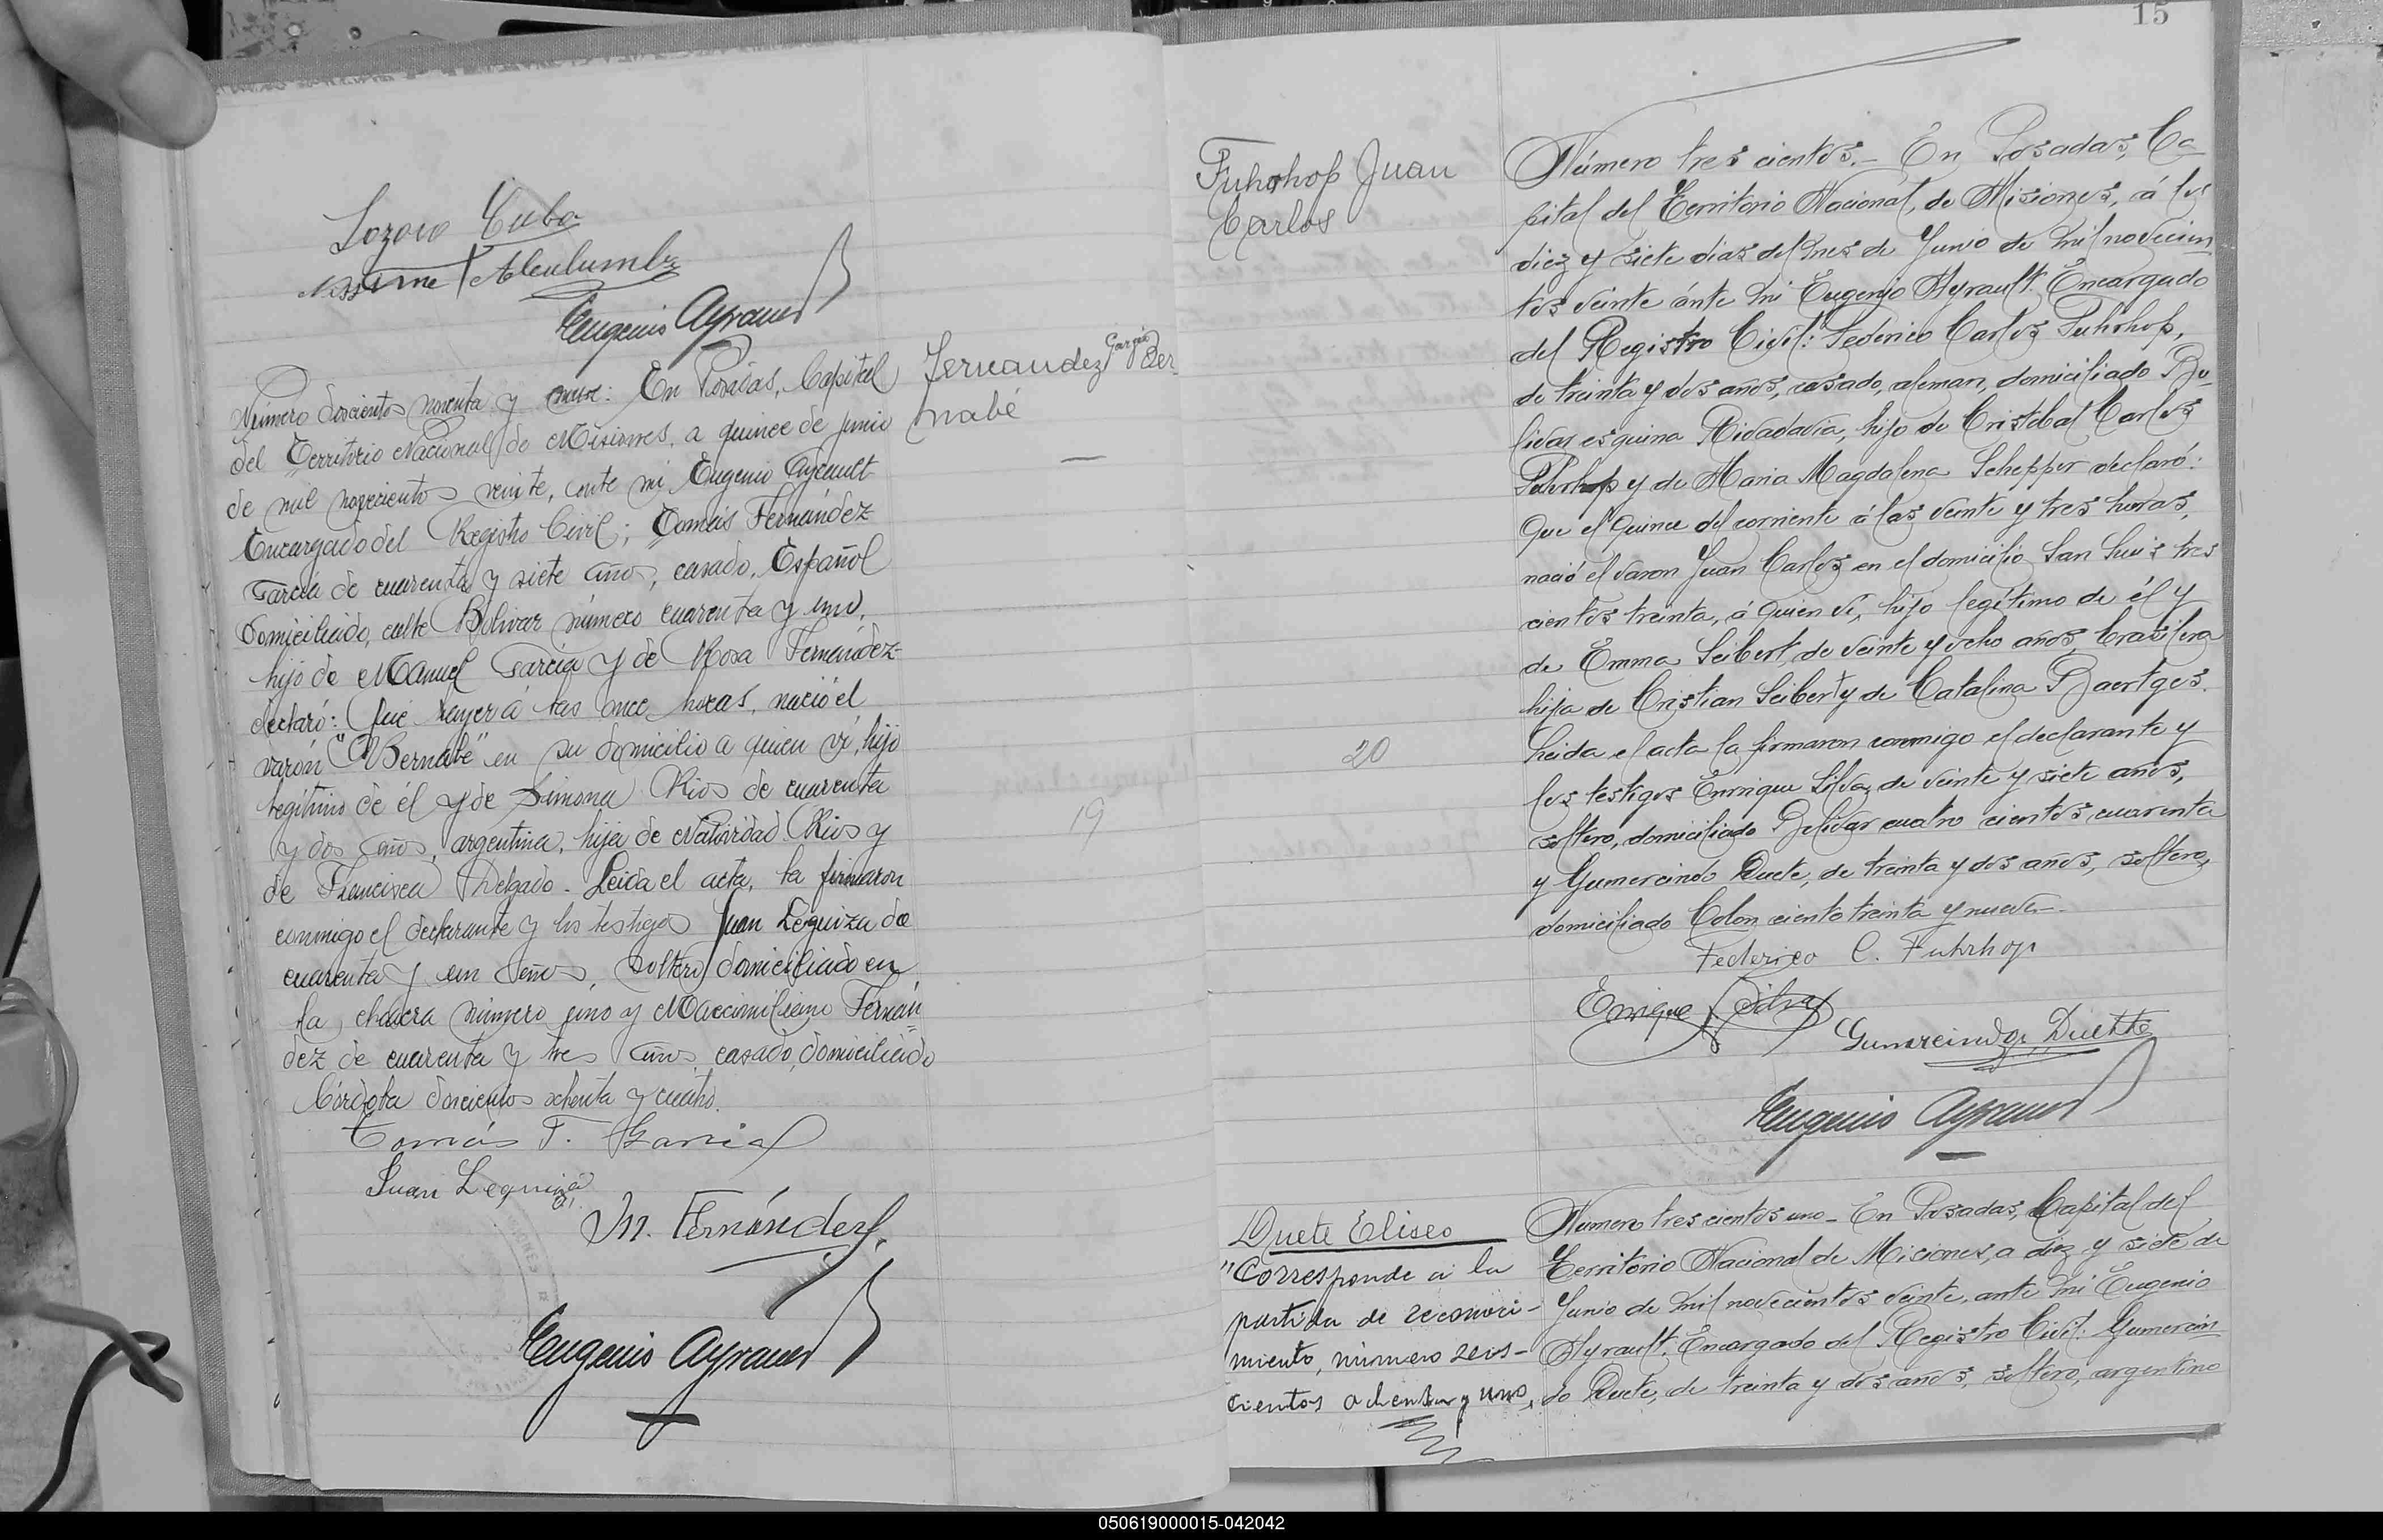 Lozoro Cuba
Nessime Alculumbre
Eugenio Ayrault
Fernandez García Ber-
nabé
Número doscientos noventa y nueve: En Posadas, Capital
del Territorio Nacional de Misiones, a quince de junio
de mil novecientos veinte, ante mi Eugenio Ayrault
Encargado del Registro Civil; Tomás Fernández
García de cuarenta y siete años, casado, Español
domiciliado, calle Bolivar número cuarenta y uno,
hijo de Manuel García y de Rosa Fernández-
declaró: Que ayer á las once horas, nació el
varón "Bernabé" en su domicilio a quien ví, hijo
legítimo de él y de Simona Rios de cuarenta
y dos años, argentina, hija de Natividad Rios y
de Francisca Delgado. Leida el acta, la firmaron
conmigo el declarante y los testigos Juan Leguiza de
cuarenta y un años, soltero domiciliado en
la chacra número uno y Maccimiliano Fernán
dez de cuarenta y tres años casado, domiciliado
Córdoba doscientos ochenta y cuatro.
19
Tomás F. Garcia
Juan Leguiza
M. Fernández
Eugenio Ayrault
15
Fuhrhop Juan
Carlos
Número tres cientos.- En Posadas, Ca
pital del Territorio Nacional, de Misiones, á los
diez y siete dias del mes de Junio de mil novecien
tos veinte ánte mi Eugenio Ayrault. Encargado
del Registro Civil: Federico Carlos Fuhrhop,
de treinta y dos años, casado, aleman, domiciliado Bo-
livar esquina Rivadavia, hijo de Cristobal Carlos
Fuhrhop y de Maria Magdalena Schepper declaró:
Que el quince del corriente á las veinte y tres horas,
nació el varon Juan Carlos en el domicilio San Luis tres
cientos treinta, á quien ví, hijo legítimo de él y
de Emma Seibert, de veinte y ocho años, brasilera
hija de Cristian Seibert y de Catalina Baertges.
Leida el acta la firmaron conmigo el declarante y
los testigos Enrique Silva, de veinte y siete años,
soltero, domiciliado Bolivar cuatro cientos cuarenta
y Gumercindo Duete, de treinta y dos años, soltero,
domiciliado Colon ciento treinta y nueve.-
20
Federico C. Fuhrhop
Enrique Silva
Gumercindo Duette
Eugenio Ayrault
Duete Eliseo
"Corresponde a la
partida de reconoci-
miento, número seis-
cientos ochenta y uno,
Número tres cientos uno- En Posadas, Capital del
Territorio Nacional de Miciones, a diez y siete de
Junio de mil novecientos veinte, ante mi Eugenio
Ayrault, Encargado del Registro Civil: Gumercin
do Duete, de treinta y dos años, soltero, argentino
050619000015-042042